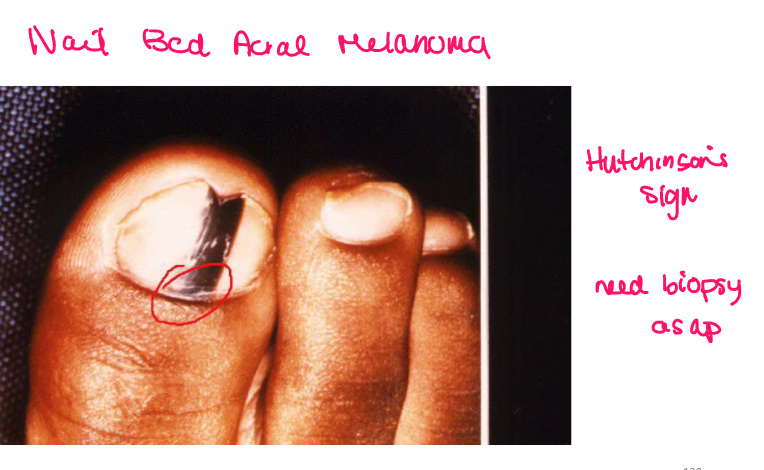 Nail Bed Acral Melanoma
Hutchinson's
sign
need biopsy
asap